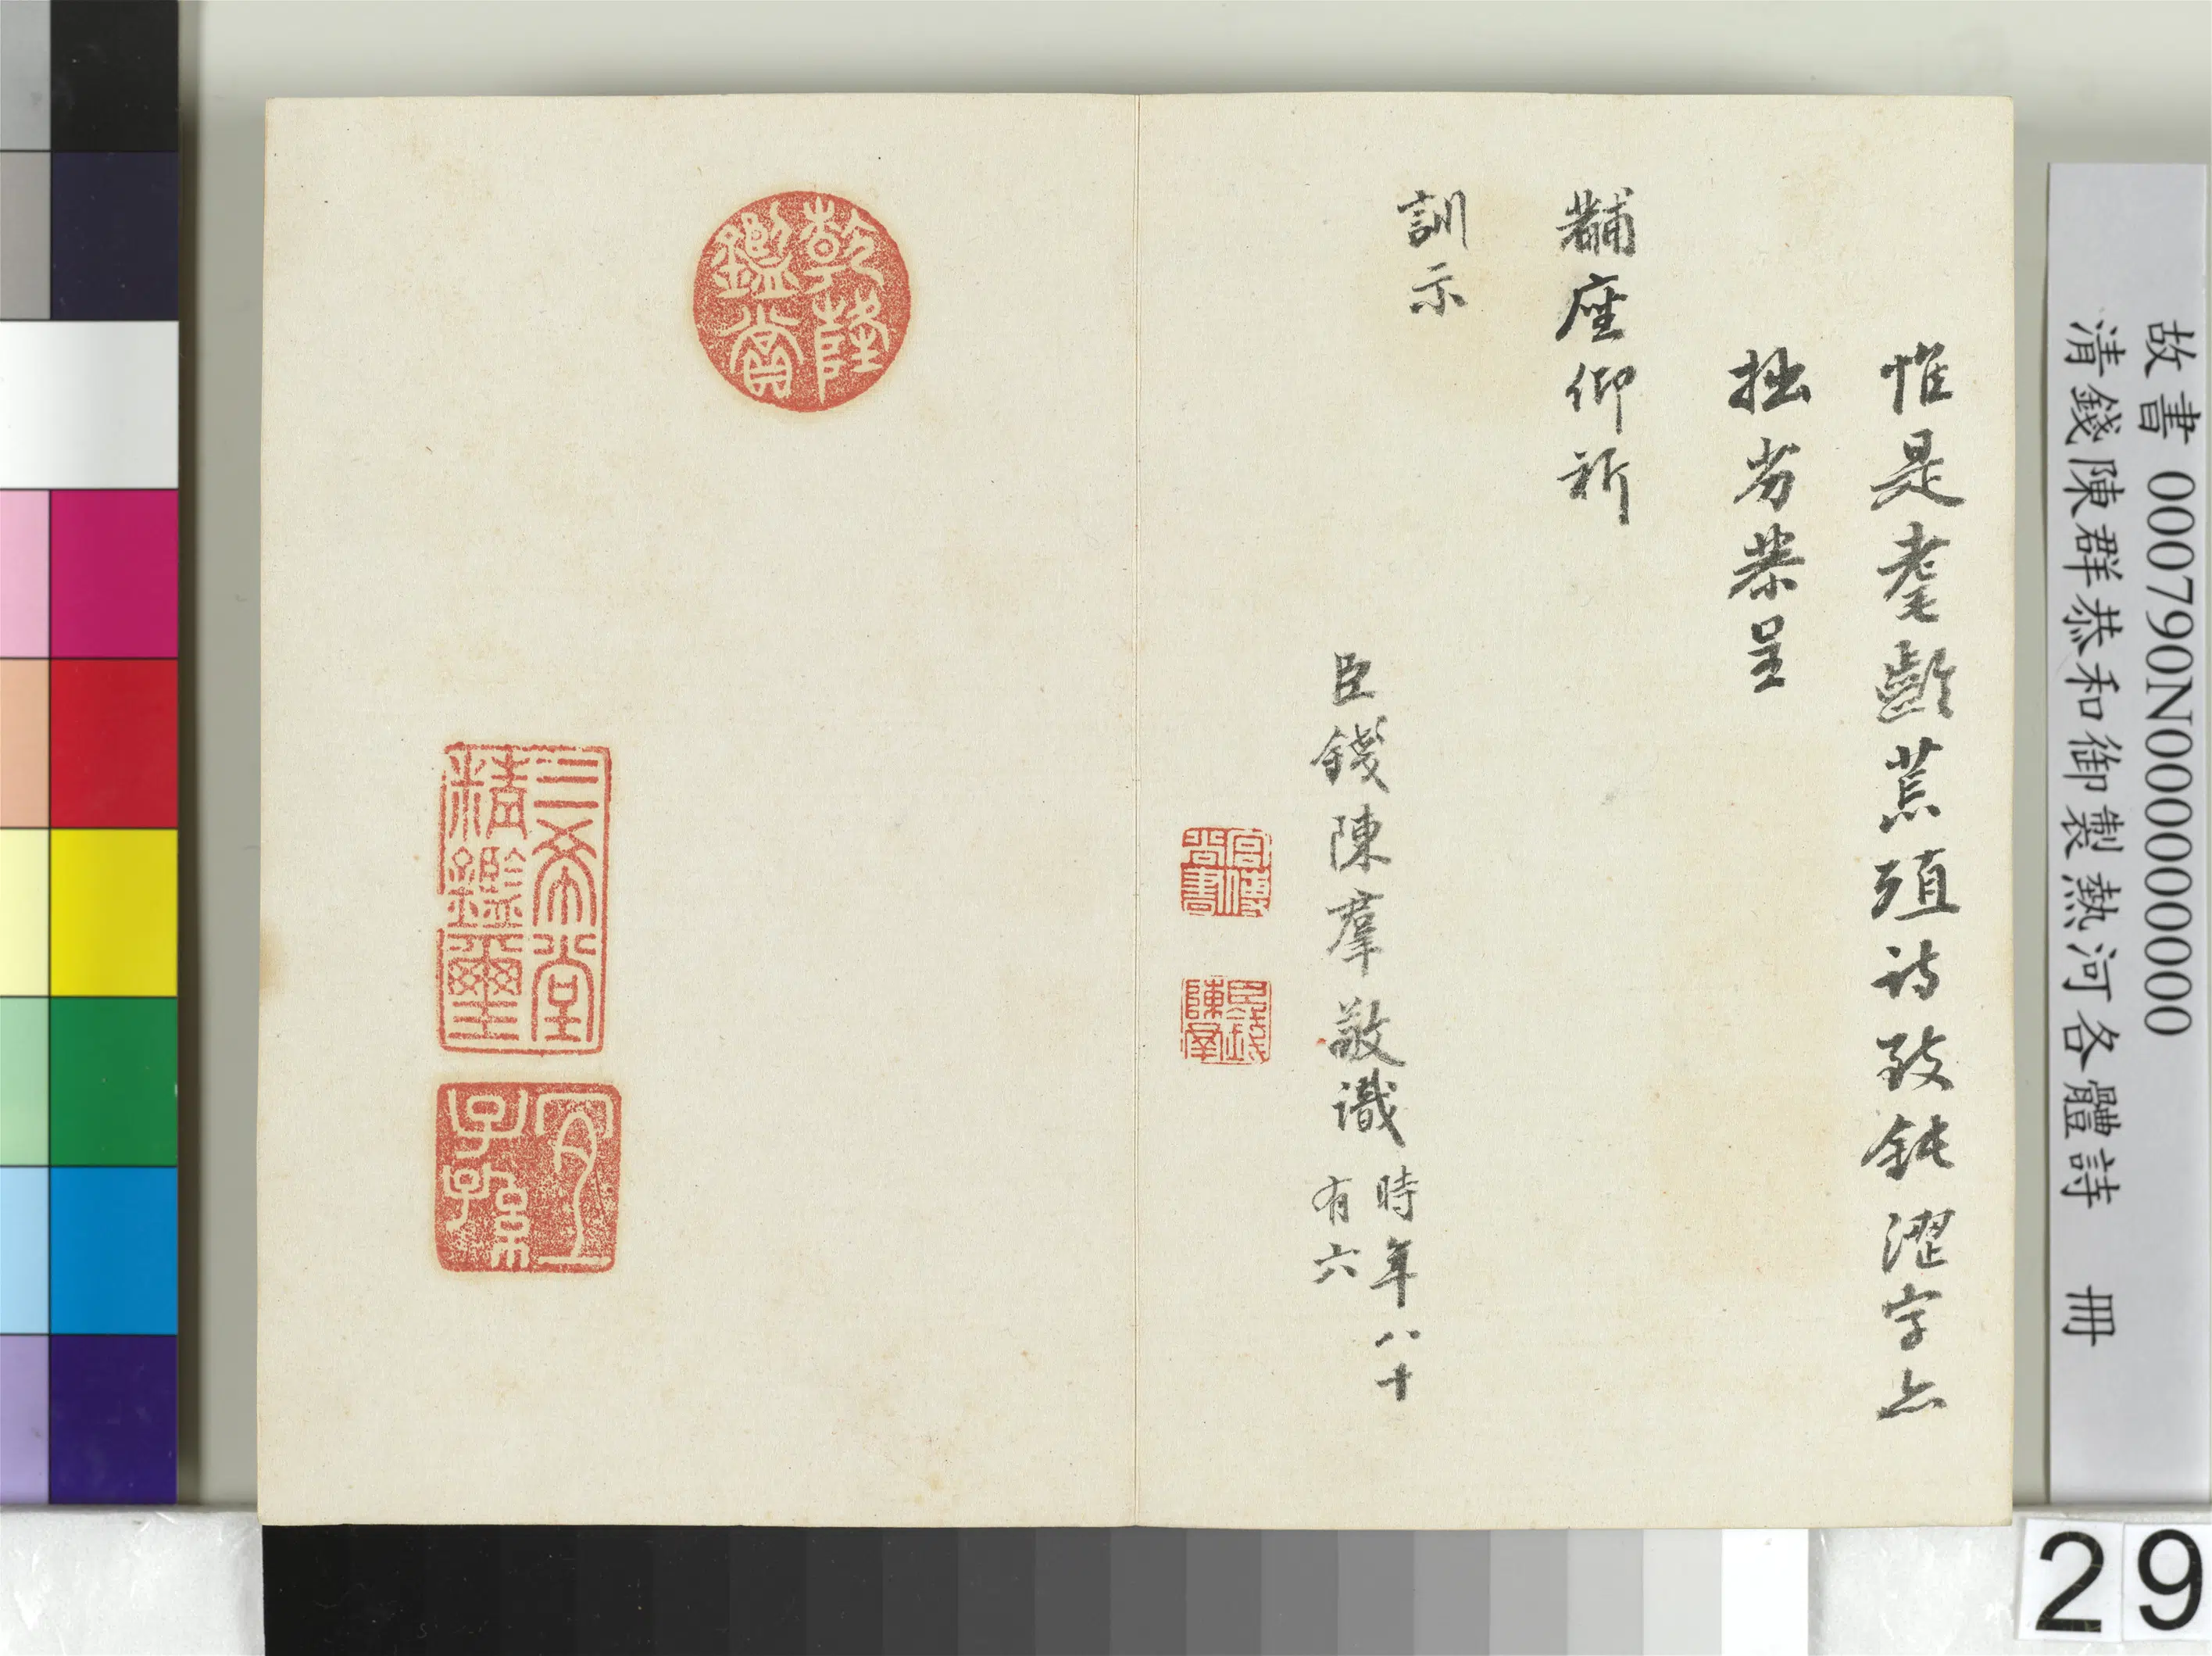 故書 000790N000000000
清錢陳群恭和御製熱河各體詩 冊
惟是耄齡荒殖詩致鈍澀字亦
拙劣恭呈
黼座仰祈
訓示
臣錢陳羣敬識
時年八十
有六
宮傅
尚書
臣錢
陳羣
乾隆
鑑賞
三希堂
精鑑璽
宜
子孫
29